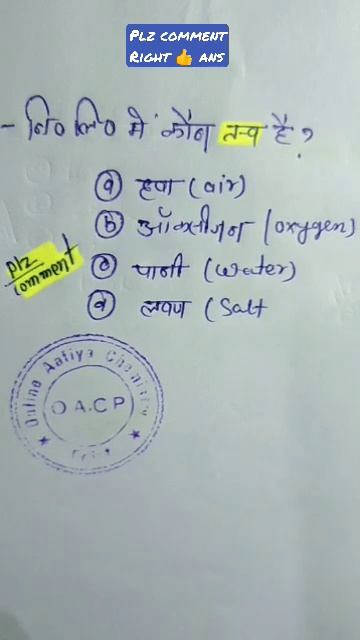 PLZ COMMENT
RIGHT 👍 ANS
- नि० लि० में कौन तत्व है ?
ⓐ हवा (air)
ⓑ ऑक्सीजन (oxygen)
ⓒ पानी (water)
ⓓ लवण (Salt
plz
comment
Online Aatiya Chemistry
O A.C.P